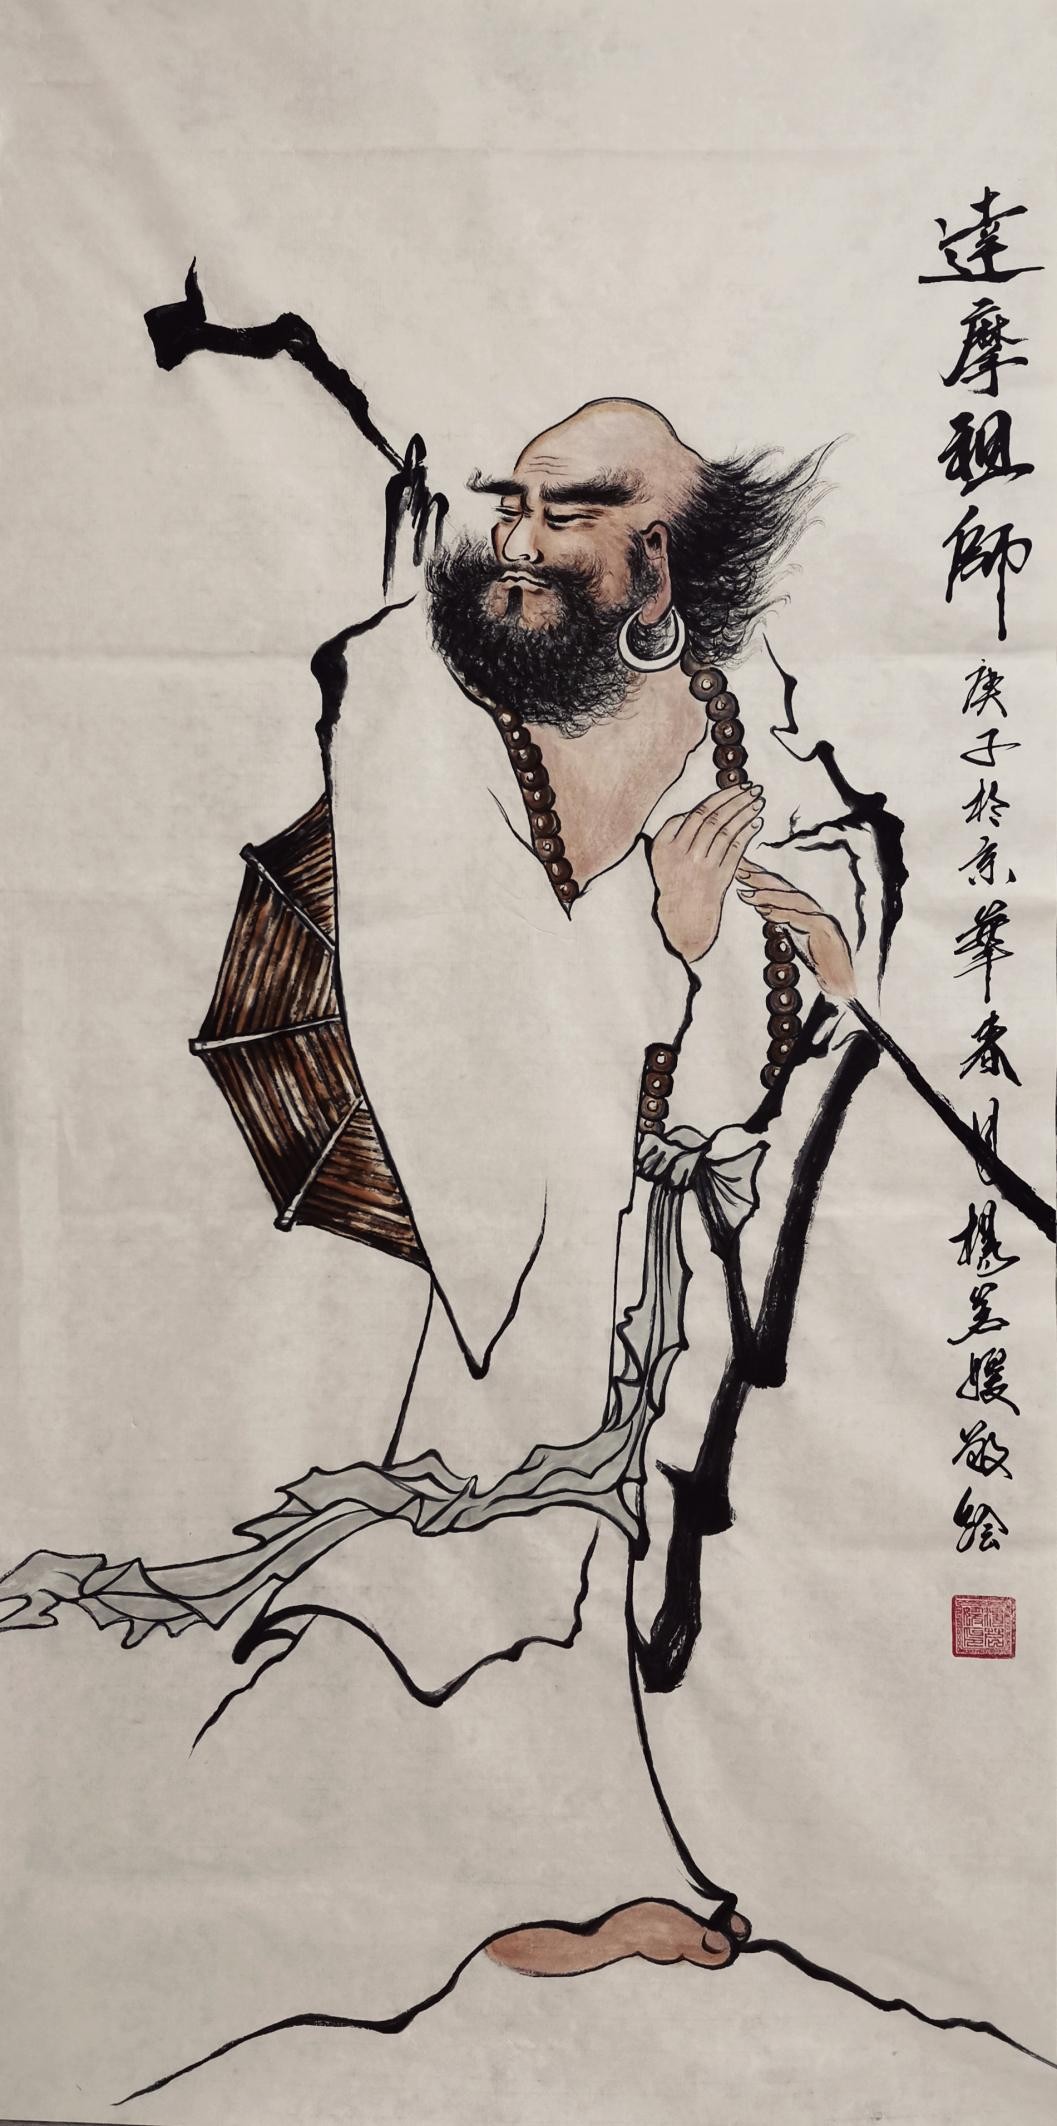 達摩祖師
庚子於京華春月楊茗媛敬繪